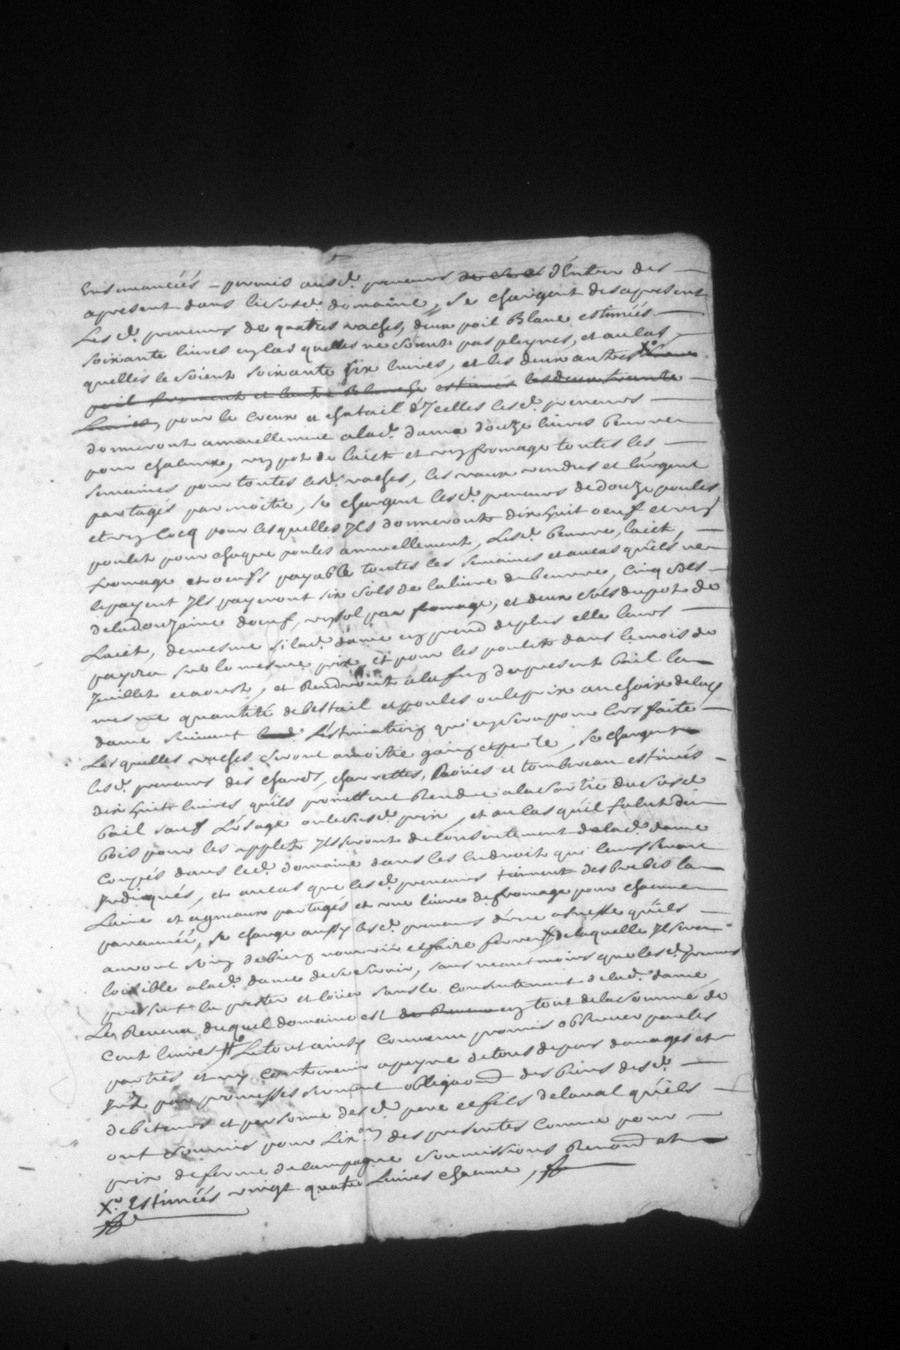 Ensemancéés – permis ausd. preneurs de ... d'Entrer des
apresent dans le susd. domaine, se chargent desapresent
Les d. preneurs de quatres vaches, deux poil Blanc estimeés
soixante livres en las quelles ne soient pas pleynes, et au cas
quelles le soient soixante six livres, et les deux autres X.
poil fromant et lautre Blanche estimés les deux trante
Livres, pour le creux et chatail d'Jcelles lesd. preneurs
donneront annuellement a lad. dame douze livres beurre
pour chacune, un pot de laict et un fromage toutes les
semaines pour toutes lesd. vaches, les vaux vendus et l'argent
partagés par moitié, se chargent lesd. preneurs de douze poules
et un Cocq pour lesquelles Jls donneront dix huit oeuf et un
poulet pour chaque poules annuellement, Lesd. beurre, laict,
fromage et oeufs payable toutes les semaines et au cas qu'ils ne
le payent Jls payeront six sols de la livre de beurre, Cinq sols
de la douzaine doeuf, un sol par fromage, et deux sols du pot de
Laict, de mesme si lad. dame en prend de plus elle leurs
payera sur le mesme prix, et pour les poulets dans le mois de
Juillet et aoust, et Rendront a la fin du present bail la
mesme quantité de bestail et poules ou le prix au choix de lad.
dame suivant l'Estimation qui en sera pour lors faite
Lesquelles vaches seront a moitié gain et perte, se chargent
lesd. preneurs des chards, charrettes, Rouës et tombereau estimés
dix huit livres, qu'ils promettent Rendre a la sortie du susd.
bail sauf L'usage ou le susd. prix, et au cas qu'il falut du
bois pour les applets Jls seront du consentement de lad. dame
Coupés dans led. domaine dans les Endroits qui leurs seront
Jndiqués, et au cas que lesd. preneurs tiennent des brebis la
Laine et agneaux partagés et une livre de fromage pour chacune
par année, se charge aussy lesd. preneurs d'une asnesse qu'ils
auront soing de bien nourrir et faire ferrer de laquelle Jl sera
loisible a lad. dame de se servir, sans neantmoins que lesd. preneurs
puissent la prester et louer sans le consentement de lad. dame
Le Revenu duquel domaine est de Revenu en tout de la somme de
Cent livres Le tout ainsy Convenu promis observer par les
parties et n'y contrevenir a peyne de tous depens domages et
Jnts. pour promesses seront obligaon. des biens desd.
debiteurs et personne desd. pere et fils delaval qu'ils
ont soumis pour L'Exon. des presentes comme pour
prix de ferme de campagne soumissions Renonon. et
X. Estimées vingt quatre Livres chacune,